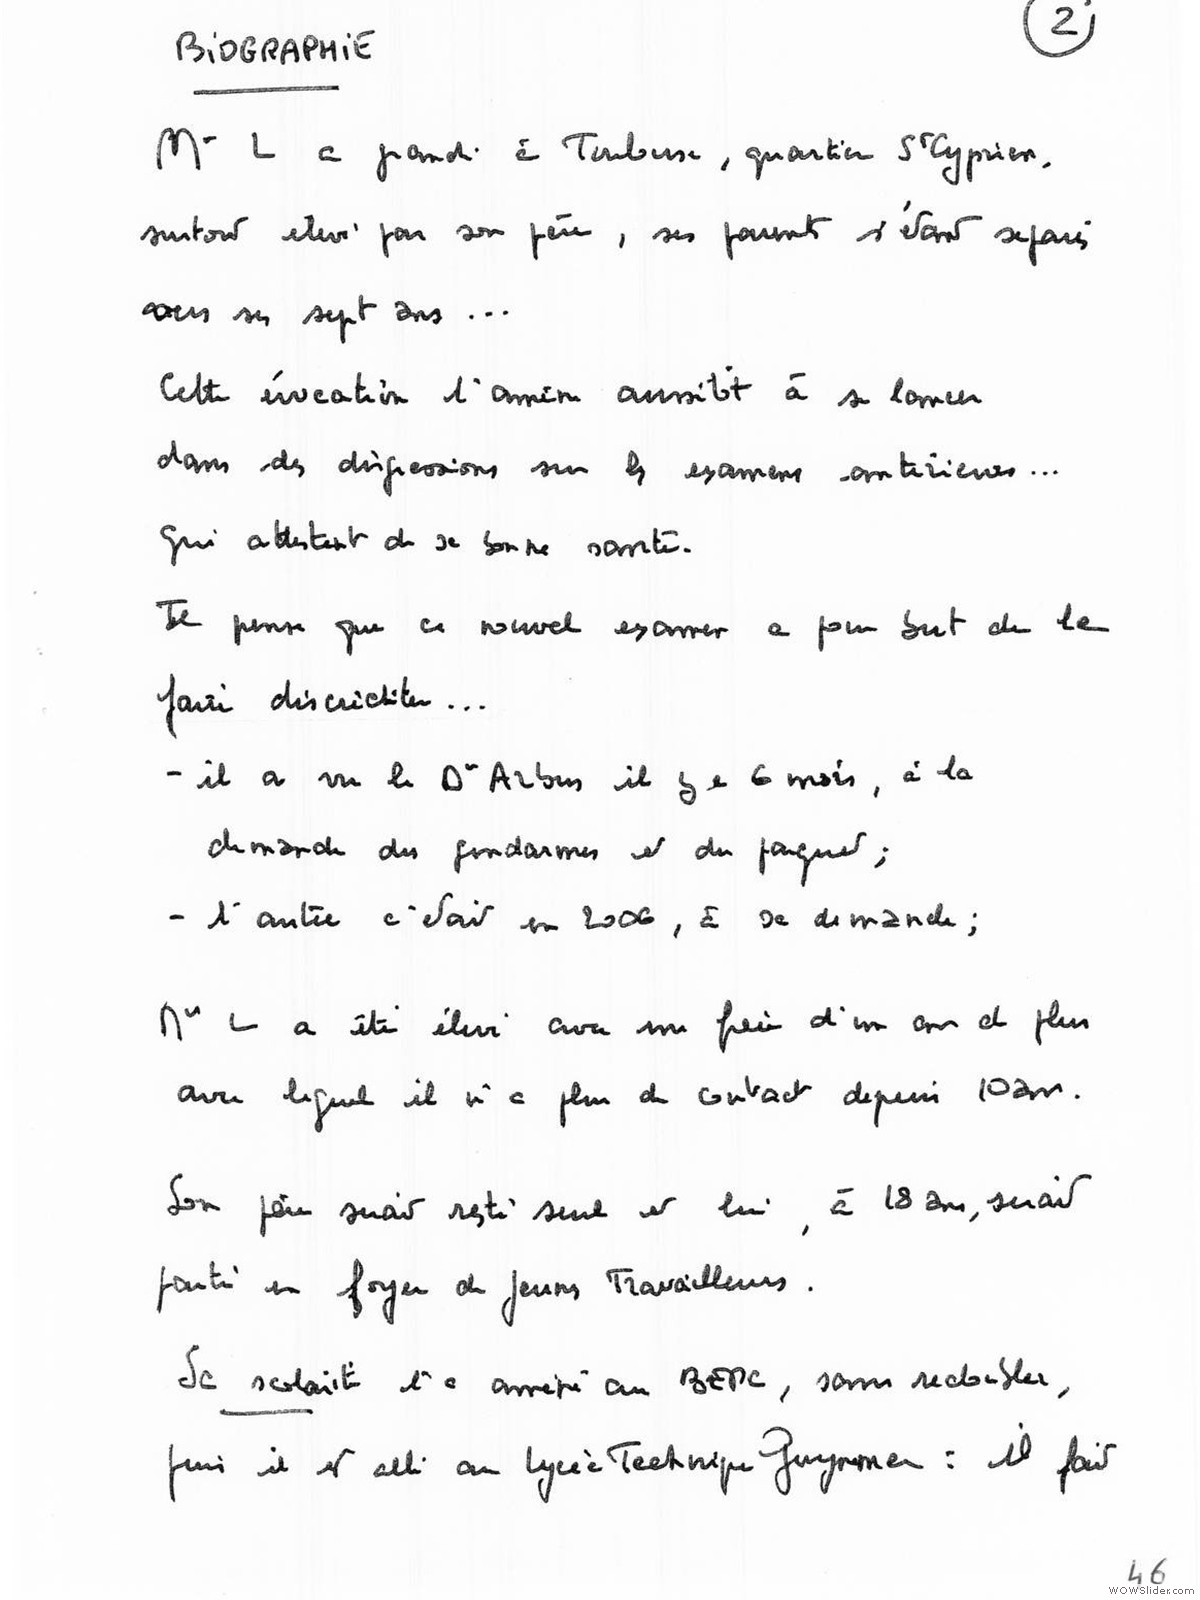 2
BIOGRAPHIE
Mr L a grandi à Toulouse, quartier St Cyprien,
surtout élevé par son père, ses parents s'étant séparés
vers ses sept ans...
Cette évocation l'amène aussitôt à se lancer
dans des digressions sur les examens antérieurs...
qui attestent de sa bonne santé.
Il pense que ce nouvel examen a pour but de le
faire discréditer...
- il a vu le Dr Arbus il y a 6 mois, à la
demande des gendarmes et du parquet;
- l'autre c'était en 2006, à sa demande;
Mr L a été élevé avec un frère d'un an de plus
avec lequel il n'a plus de contact depuis 10 ans.
Son père serait resté seul et lui, à 18 ans, serait
parti en foyer de Jeunes Travailleurs.
Sa scolarité l'a amené au BEPC, sans redoubler,
puis il est allé au Lycée Technique Guynemer : il fait
46
WOWSlider.com